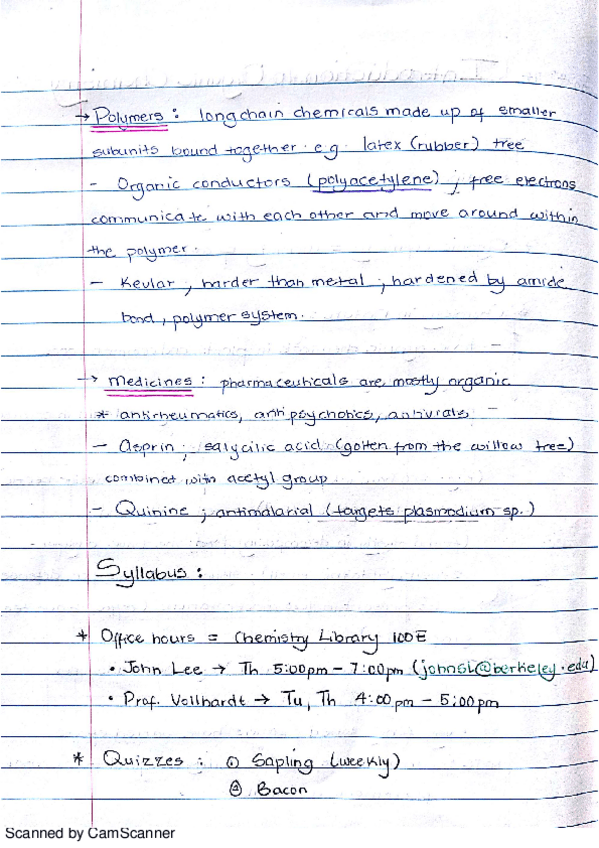 → Polymers : long chain chemicals made up of smaller
subunits bound together. e.g. latex (rubber) tree
- Organic conductors (polyacetylene) ; free electrons
communicate with each other and move around within
the polymer.
- Kevlar, harder than metal ; hardened by amide
bond, polymer system.
→ Medicines : pharmaceuticals are mostly organic
* antirheumatics, antipsychotics, antivirals
- Asprin ; salycilic acid (gotten from the willow tree)
combined with acetyl group.
- Quinine ; antimalarial (targets plasmodium sp.)
Syllabus :
* Office hours = Chemistry Library 100E
• John Lee → Th 5:00pm - 7:00pm (johnsl@berkeley.edu)
• Prof. Vollhardt → Tu, Th 4:00pm - 5:00pm
* Quizzes : ① Sapling (weekly)
② Bacon
Scanned by CamScanner